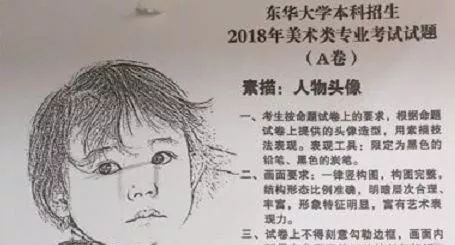 东华大学本科招生
2018年美术类专业考试试题
（A卷）
素描：人物头像
一、考生按命题试卷上的要求，根据命题
试卷上提供的头像造型，用素描技
法表现。表现工具：限定为黑色的
铅笔、黑色的炭笔。
二、画面要求：一律竖构图，构图完整，
结构形态比例准确，明暗层次合理、
丰富，形象特征明显，富有艺术表
现力。
三、试卷上不得刻意勾勒边框，画面内